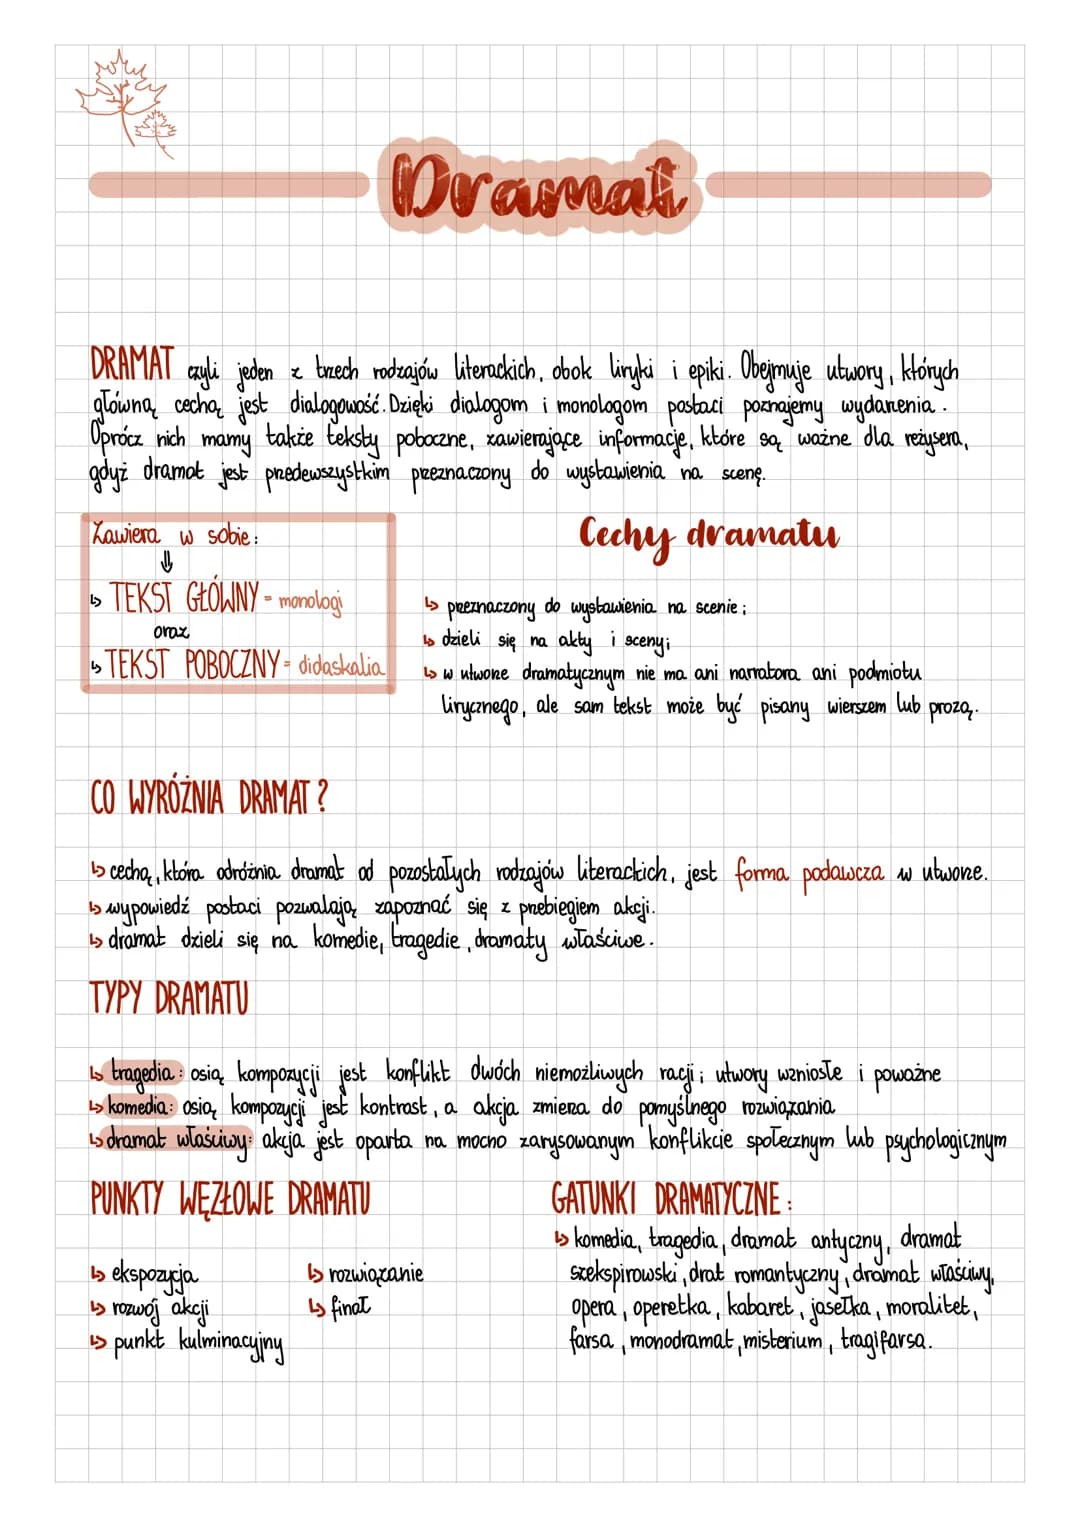 Dramat
DRAMAT czyli jeden z trzech rodzajów literackich, obok liryki i epiki. Obejmuje utwory, których
główną cechą jest dialogowość. Dzięki dialogom i monologom postaci poznajemy wydarzenia.
Oprócz nich mamy także teksty poboczne, zawierające informacje, które są ważne dla reżysera,
gdyż dramat jest przedewszystkim przeznaczony do wystawienia na scenę.
Zawiera w sobie:
⇓
↳ TEKST GŁÓWNY = monologi
oraz
↳ TEKST POBOCZNY = didaskalia
Cechy dramatu
↳ przeznaczony do wystawienia na scenie;
↳ dzieli się na akty i sceny;
↳ w utworze dramatycznym nie ma ani narratora ani podmiotu
lirycznego, ale sam tekst może być pisany wierszem lub prozą.
CO WYRÓŻNIA DRAMAT?
↳ cechą, która odróżnia dramat od pozostałych rodzajów literackich, jest forma podawcza w utworze.
↳ wypowiedź postaci pozwalają zapoznać się z przebiegiem akcji.
↳ dramat dzieli się na komedie, tragedie, dramaty właściwe.
TYPY DRAMATU
↳ tragedia: osią kompozycji jest konflikt dwóch niemożliwych racji; utwory wzniosłe i poważne
↳ komedia: osią kompozycji jest kontrast, a akcja zmierza do pomyślnego rozwiązania
↳ dramat właściwy: akcja jest oparta na mocno zarysowanym konflikcie społecznym lub psychologicznym
PUNKTY WĘZŁOWE DRAMATU
↳ ekspozycja
↳ rozwój akcji
↳ punkt kulminacyjny
↳ rozwiązanie
↳ finał
GATUNKI DRAMATYCZNE:
↳ komedia, tragedia, dramat antyczny, dramat
szekspirowski, drat romantyczny, dramat właściwy,
opera, operetka, kabaret, jasełka, moralitet,
farsa, monodramat, misterium, tragifarsa.